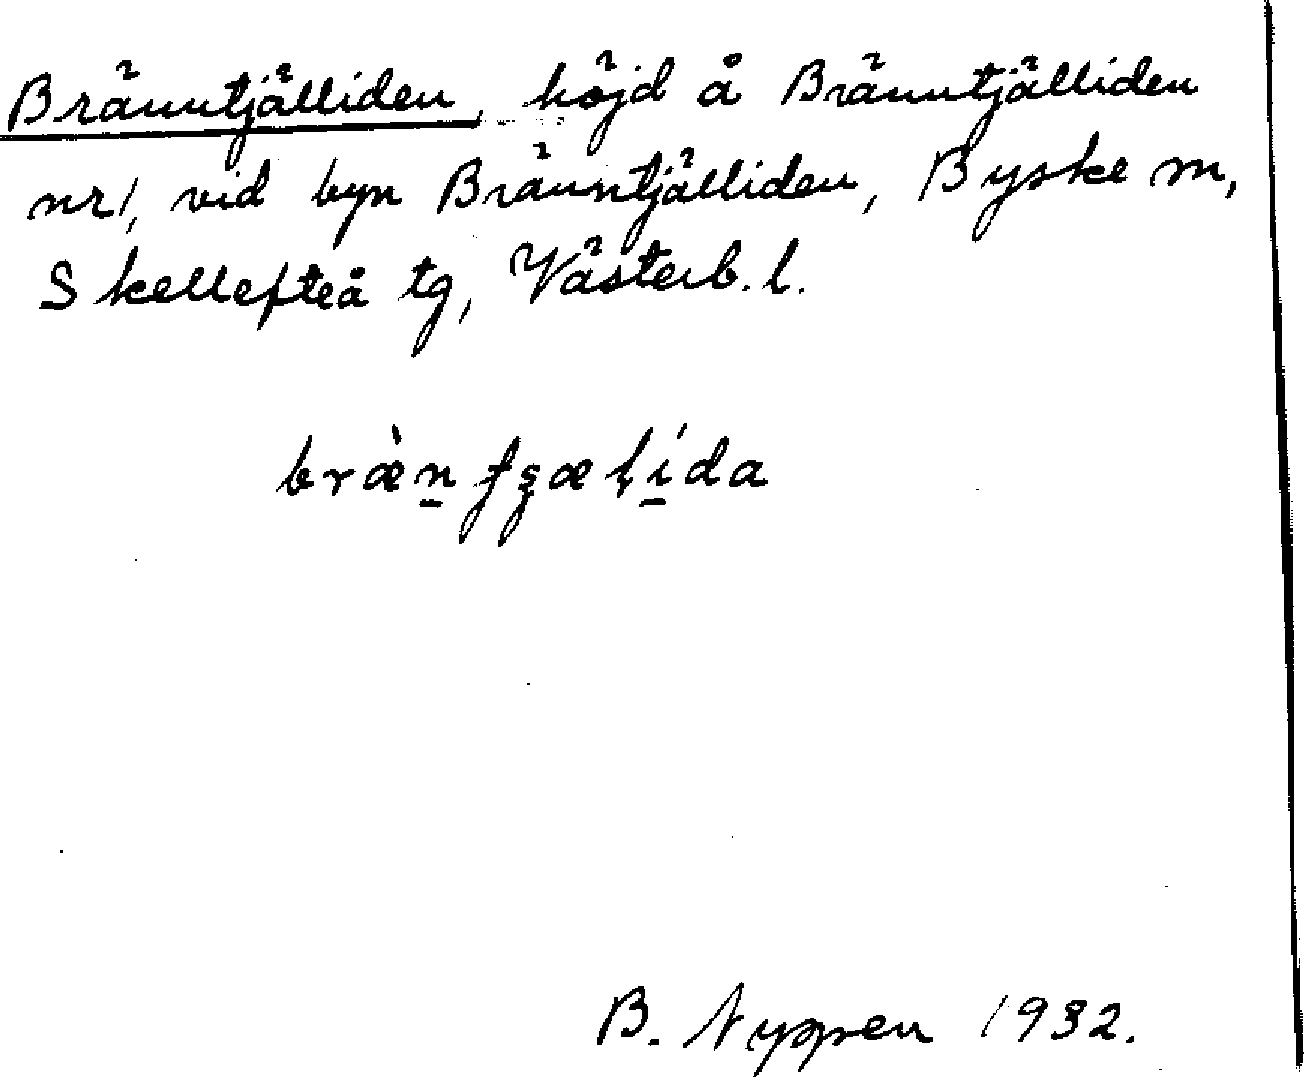 Bränntjälliden, höjd å Bränntjälliden
nr 1, vid byn Bränntjälliden, Byske sn,
Skellefteå tg, Västerb. l.
bræ̀n̠ʃʂæḷí̠da
B. Nyppen 1932.